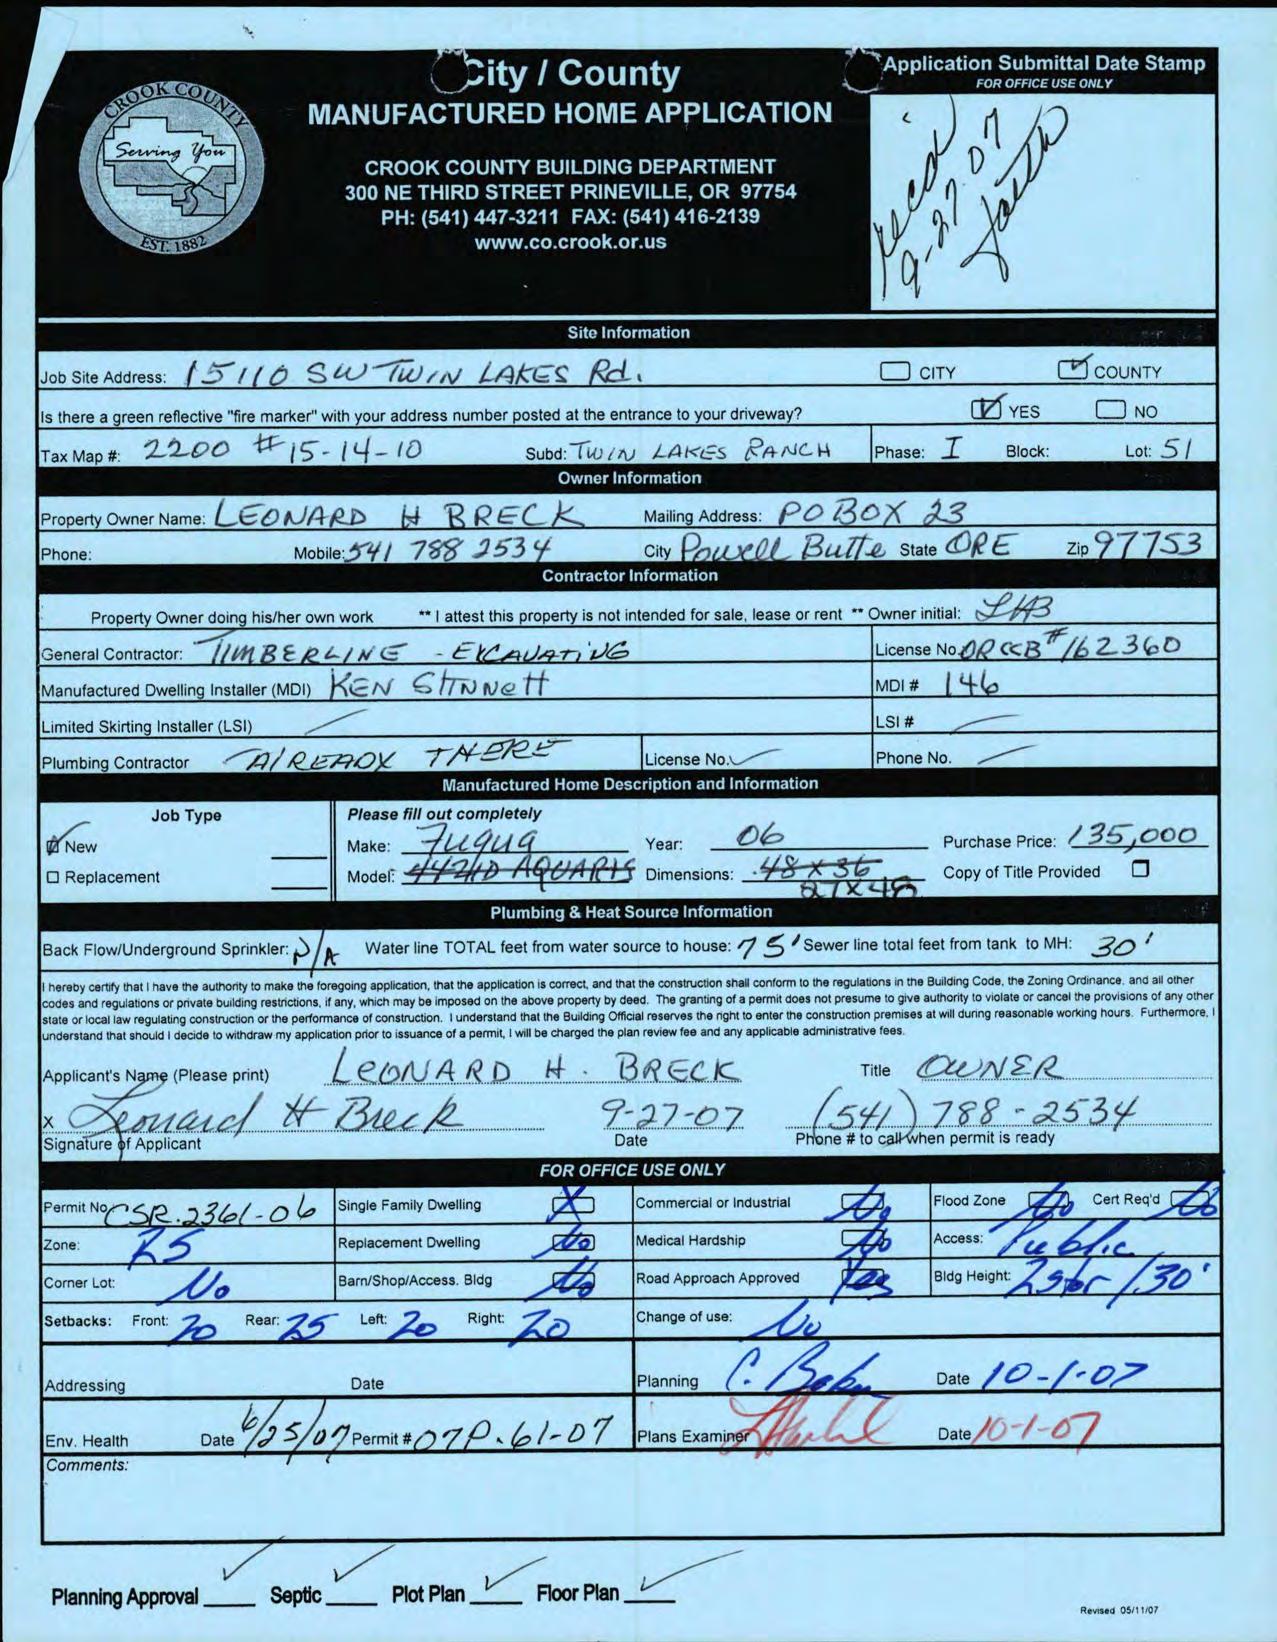 City / County
MANUFACTURED HOME APPLICATION
CROOK COUNTY BUILDING DEPARTMENT
300 NE THIRD STREET PRINEVILLE, OR 97754
PH: (541) 447-3211 FAX: (541) 416-2139
www.co.crook.or.us
CROOK COUNTY
Serving You
EST. 1882
Application Submittal Date Stamp
FOR OFFICE USE ONLY
rec'd
9-27-07
Site Information
Job Site Address: 15110 SW TWIN LAKES Rd. CITY COUNTY
Is there a green reflective "fire marker" with your address number posted at the entrance to your driveway? YES NO
Tax Map #: 2200 # 15-14-10 Subd: TWIN LAKES RANCH Phase: I Block: Lot: 51
Owner Information
Property Owner Name: LEONARD H BRECK Mailing Address: PO BOX 23
Phone: Mobile: 541 788 2534 City Powell Butte State ORE Zip 97753
Contractor Information
Property Owner doing his/her own work ** I attest this property is not intended for sale, lease or rent ** Owner initial: LHB
General Contractor: TIMBERLINE - EXCAVATING License No. OR CCB # 162360
Manufactured Dwelling Installer (MDI) KEN STINNETT MDI # 146
Limited Skirting Installer (LSI) LSI #
Plumbing Contractor AlREADY THERE License No. Phone No.
Manufactured Home Description and Information
Job Type Please fill out completely
New Make: Fuqua Year: 06 Purchase Price: 135,000
Replacement Model: AQUARIS Dimensions: 48 x 36 Copy of Title Provided
27 x 48
Plumbing & Heat Source Information
Back Flow/Underground Sprinkler: N/A Water line TOTAL feet from water source to house: 75' Sewer line total feet from tank to MH: 30'
I hereby certify that I have the authority to make the foregoing application, that the application is correct, and that the construction shall conform to the regulations in the Building Code, the Zoning Ordinance, and all other
codes and regulations or private building restrictions, if any, which may be imposed on the above property by deed. The granting of a permit does not presume to give authority to violate or cancel the provisions of any other
state or local law regulating construction or the performance of construction. I understand that the Building Official reserves the right to enter the construction premises at will during reasonable working hours. Furthermore, I
understand that should I decide to withdraw my application prior to issuance of a permit, I will be charged the plan review fee and any applicable administrative fees.
Applicant's Name (Please print) LEONARD H. BRECK Title OWNER
x Leonard H Breck 9-27-07 (541) 788-2534
Signature of Applicant Date Phone # to call when permit is ready
FOR OFFICE USE ONLY
Permit No CSR-2361-06 Single Family Dwelling X Commercial or Industrial No Flood Zone No Cert Req'd No
Zone: R5 Replacement Dwelling No Medical Hardship No Access: Public
Corner Lot: No Barn/Shop/Access. Bldg No Road Approach Approved Yes Bldg Height: 2stor/30'
Setbacks: Front: 20 Rear: 25 Left: 20 Right: 20 Change of use: No
Addressing Date Planning C. Baker Date 10-1-07
Env. Health Date 6/25/07 Permit # 07P-61-07 Plans Examiner Date 10-1-07
Comments:
Planning Approval Septic Plot Plan Floor Plan
Revised 05/11/07